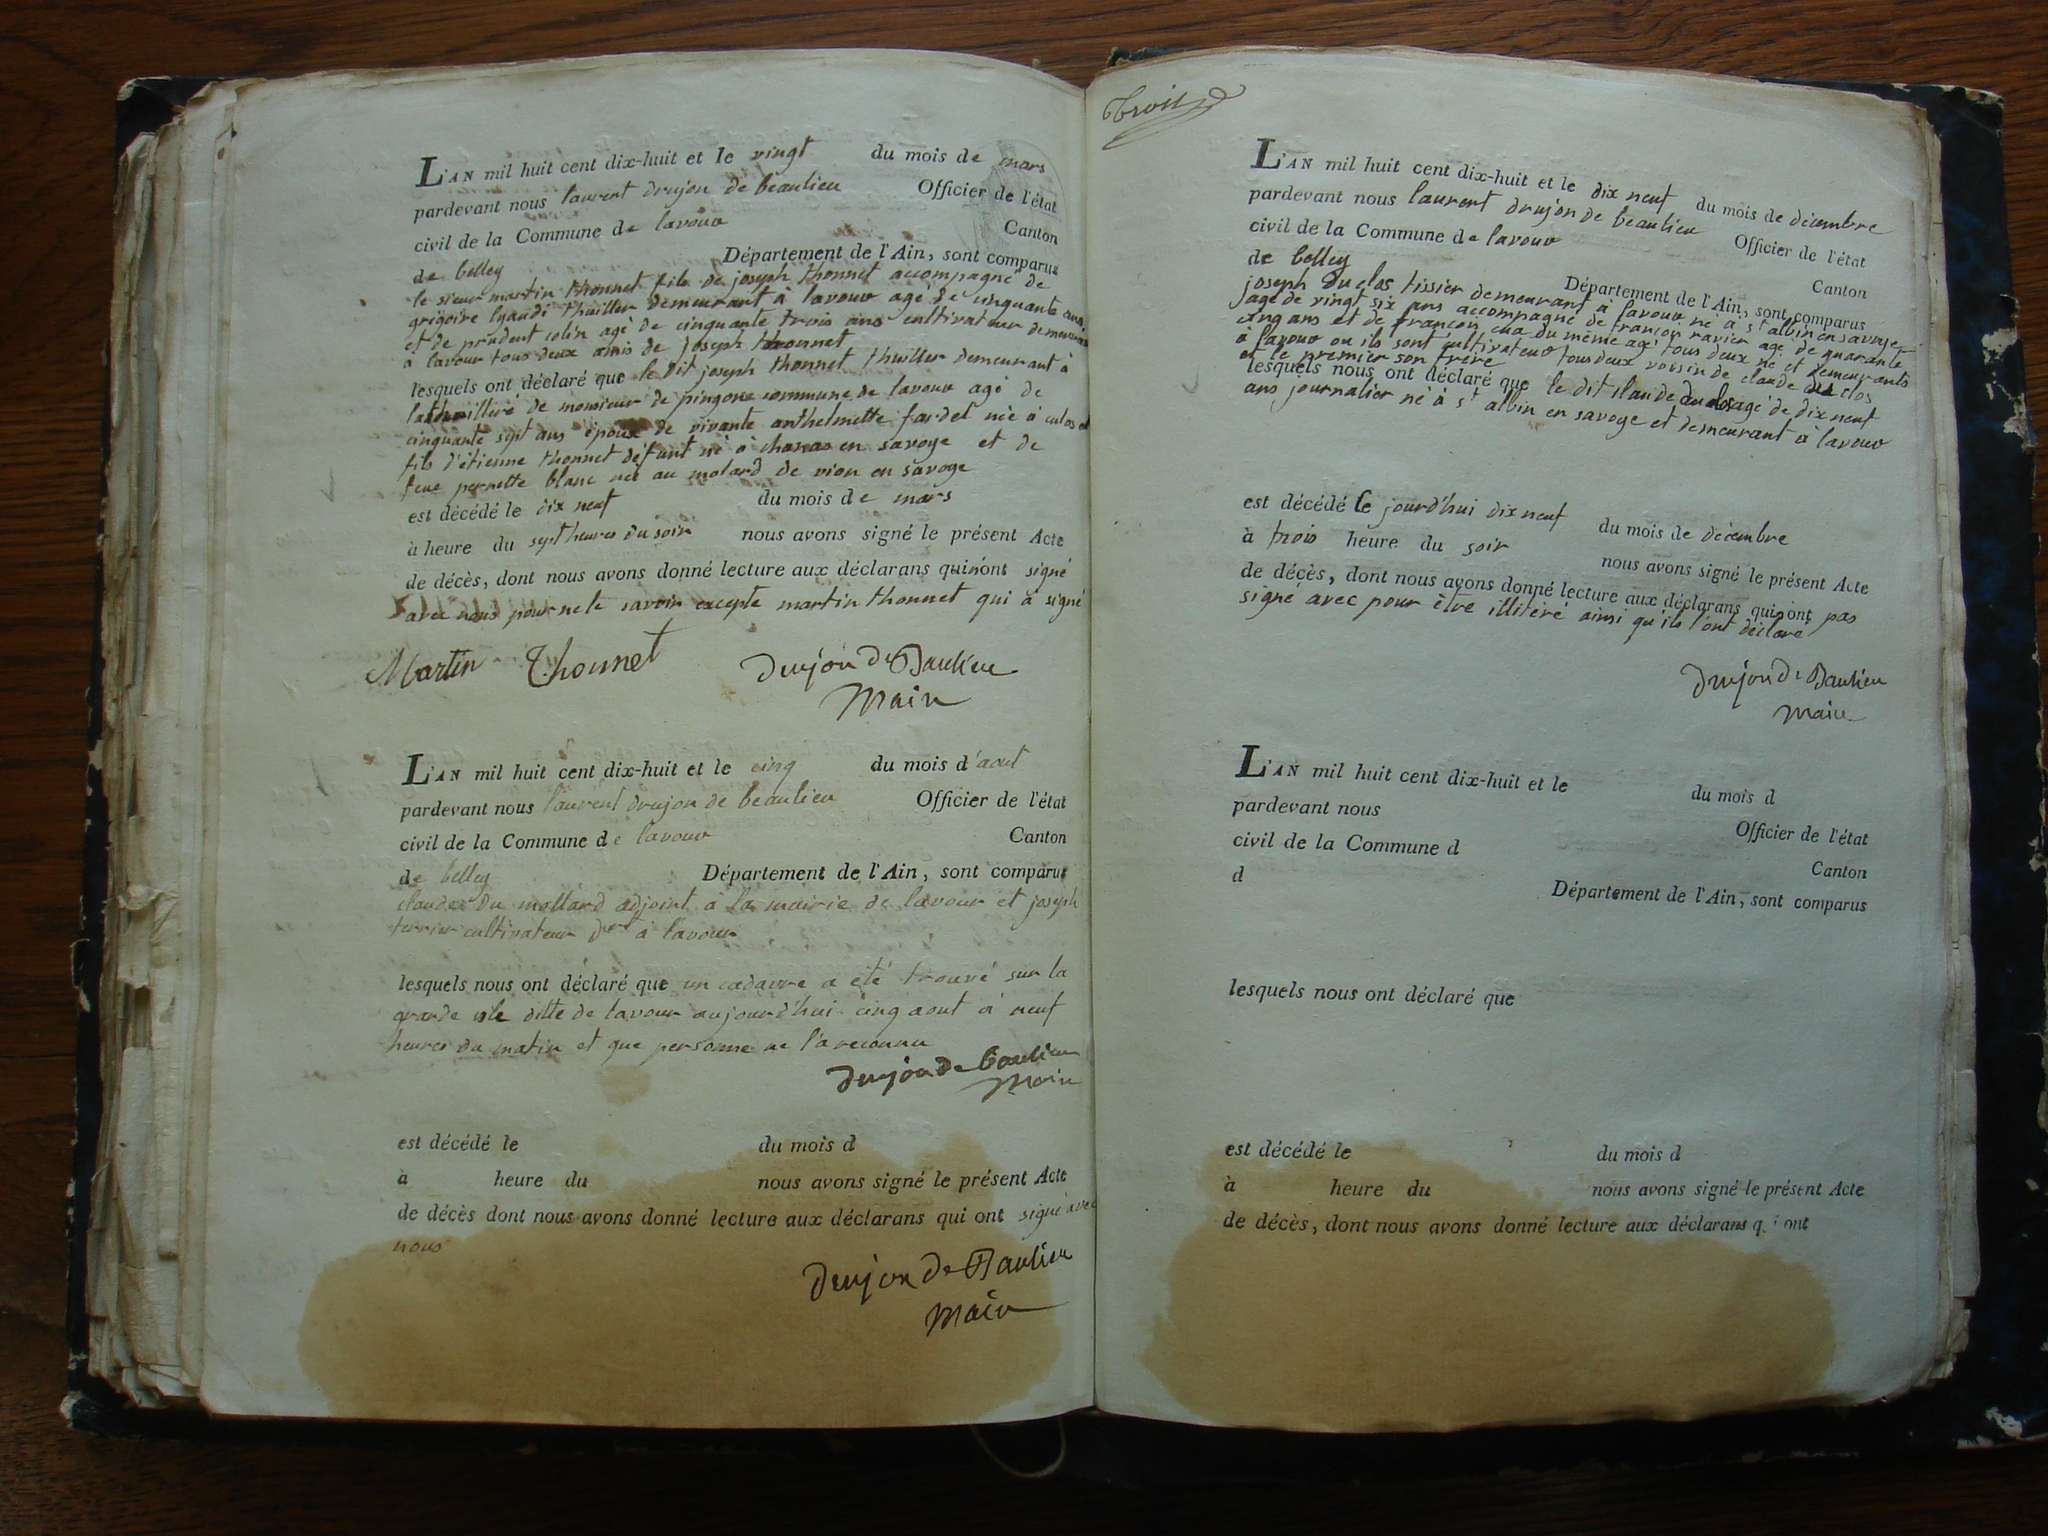 L'AN mil huit cent dix-huit et le vingt du mois de mars
pardevant nous laurent drujon de beaulieu Officier de l'état
civil de la Commune de lavour Canton
de belley Département de l'Ain, sont comparus
le sieur martin thonnet fils de joseph thonnet accompagné de
grégoire thuiller demeurant à lavour agé de cinquante ans,
et de prudent colin agé de cinquante trois ans cultivateur demeurant
à lavour tous deux amis de joseph thonnet
lesquels ont déclaré que le dit joseph thonnet thuiller demeurant à
de monsieur de pingone commune de lavour agé de
cinquante sept ans époux de vivante anthelmette fardel née à culos et
fils d'étienne thonnet défunt né à chanas en savoye et de
feue pernette blanc née au molard de vion en savoye
est décédé le dix neuf du mois de mars
à heure du sept heures du soir nous avons signé le présent Acte
de décès, dont nous avons donné lecture aux déclarans qui n'ont signé
avec nous pour ne le savoir excepte martin thonnet qui à signé
Martin Thonnet Drujon De Baulieu
Maire
L'AN mil huit cent dix-huit et le cinq du mois d'aout
pardevant nous laurent drujon de beaulieu Officier de l'état
civil de la Commune de lavour Canton
de belley Département de l'Ain, sont comparus
claude du mollard adjoint a la mairie de lavour et joseph
terrier cultivateur drt à lavour
lesquels nous ont déclaré que un cadavre a été trouvé sur la
grande isle ditte de lavour aujourd'hui cinq aout à neuf
heures du matin et que personne ne l'a reconnu
Drujon de baulieu
Maire
est décédé le du mois d
à heure du nous avons signé le présent Acte
de décès dont nous avons donné lecture aux déclarans qui ont signé avec
nous
Drujon De Baulieu
Maire
Trois
L'AN mil huit cent dix-huit et le dix neuf du mois de décembre
pardevant nous laurent drujon de beaulieu Officier de l'état
civil de la Commune de lavour Canton
de belley Département de l'Ain, sont comparus
joseph duclos tissier demeurant à lavour né à st albin en savoye
agé de vingt six ans accompagné de françois ravier agé de quarante
cinq ans et de françois du même agé tous deux né et demeurants
à lavour ou ils sont cultivateur tous deux voisin de claude du clos
et le premier son frère
lesquels nous ont déclaré que le dit claude duclos agé de dix neuf
ans journalier né à st albin en savoye et demeurant à lavour
est décédé le jourd'hui dix neuf du mois de décembre
à trois heure du soir nous avons signé le présent Acte
de décès, dont nous avons donné lecture aux déclarans qui n'ont pas
signé avec pour être illitéré ainsi qu'ils l'ont déclaré
Drujon De Baulieu
Maire
L'AN mil huit cent dix-huit et le du mois d
pardevant nous Officier de l'état
civil de la Commune d Canton
d Département de l'Ain, sont comparus
lesquels nous ont déclaré que
est décédé le du mois d
à heure du nous avons signé le présent Acte
de décès, dont nous avons donné lecture aux déclarans qui ont